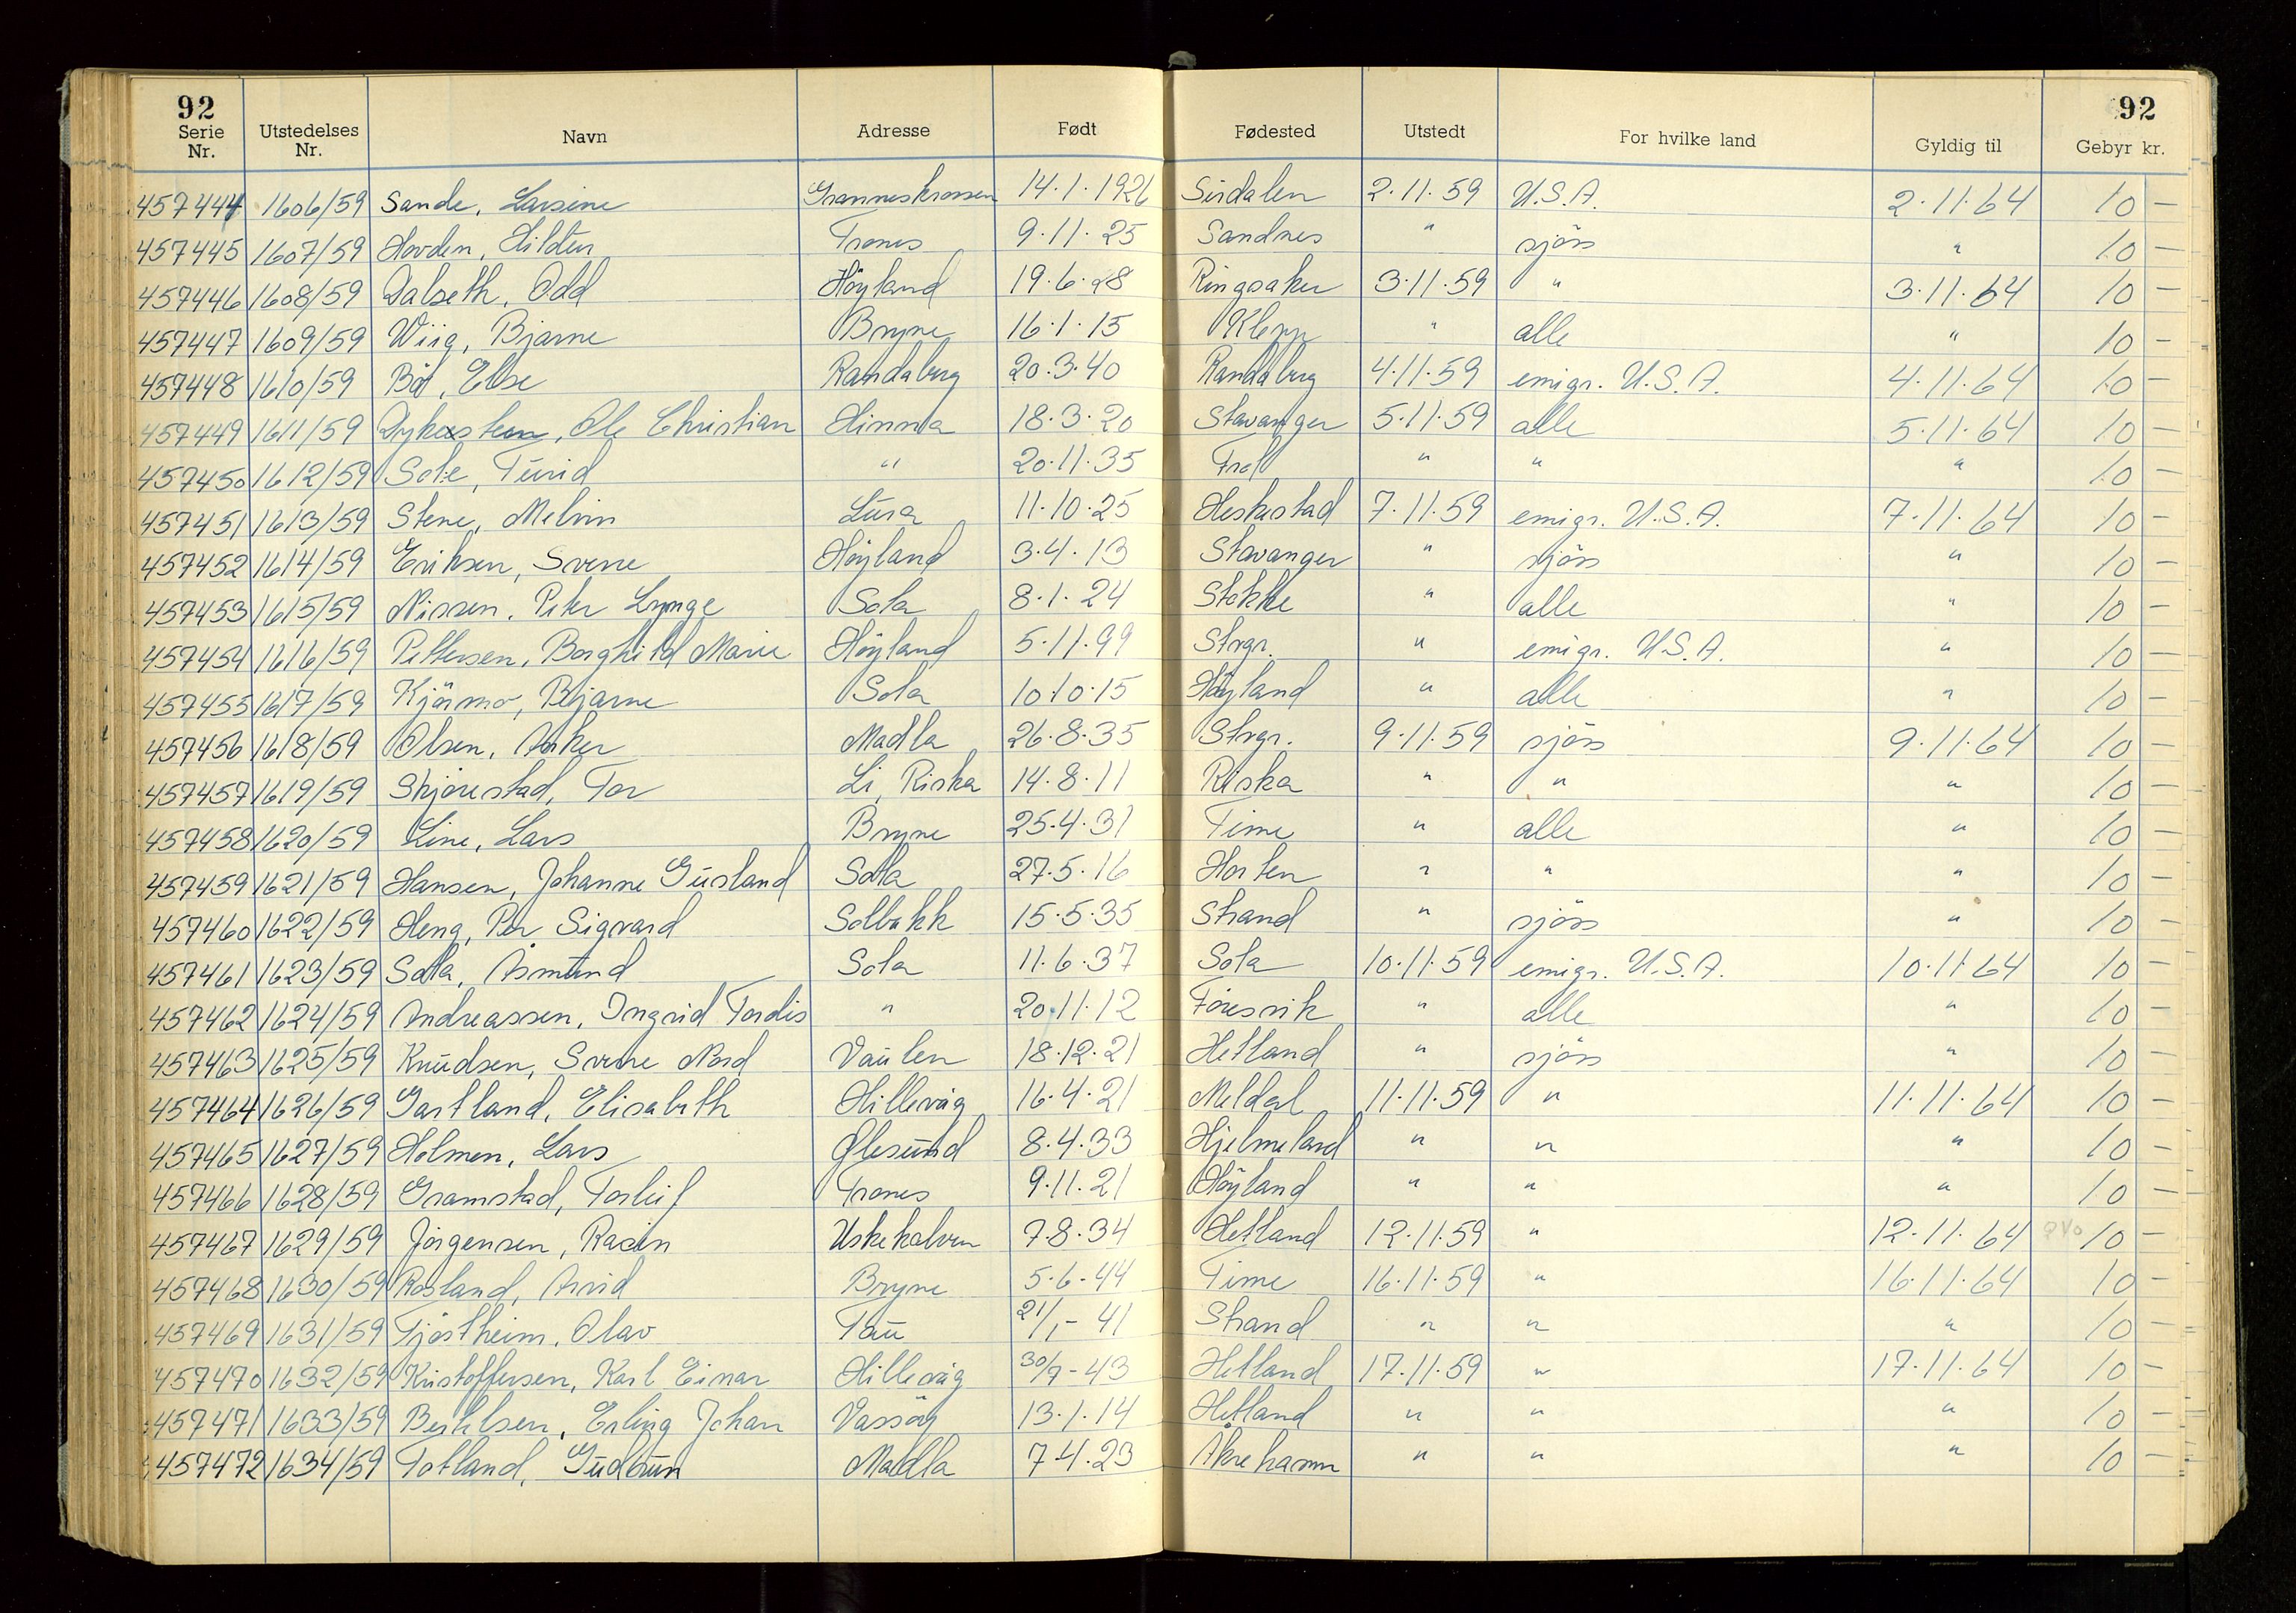 92 92
Serie Nr. Utstedelses Nr. Navn Adresse Født Fødested Utstedt For hvilke land Gyldig til Gebyr kr.
457444 1606/59 Sande, Larsine Granneskrossen 14.1.1926 Sirdalen 2.11.59 U.S.A. 2.11.64 10 —
457445 1607/59 Hovden, Trones 9.11.25 Sandnes " sjöss " 10 —
457446 1608/59 Dalseth, Odd Höyland 19.6.28 Ringsaker 3.11.59 " 3.11.64 10 —
457447 1609/59 Wiig, Bjarne Bryne 16.1.15 Klepp " alle " 10 —
457448 1610/59 Bö, Else Randaberg 20.3.40 Randaberg 4.11.59 emigr. U.S.A. 4.11.64 10 —
457449 1611/59 Ole Christian Hinna 18.3.20 Stavanger 5.11.59 alle 5.11.64 10 —
457450 1612/59 Turid " 20.11.35 " " " 10 —
457451 1613/59 Stene, Melvin Lura 11.10.25 Heskestad 7.11.59 emigr. U.S.A. 7.11.64 10 —
457452 1614/59 Eriksen, Sverre Höyland 3.4.13 Stavanger " sjöss " 10 —
457453 1615/59 Nissen, Peter Lynge Sola 8.1.24 Stokke " alle " 10 —
457454 1616/59 Pettersen, Borghild Marie Höyland 5.11.99 Stvgr. " emigr. U.S.A. " 10 —
457455 1617/59 Kjörmo, Bjarne Sola 10.10.15 Höyland " alle " 10 —
457456 1618/59 Olsen, Anker Madla 26.8.35 Stvgr. 9.11.59 sjöss 9.11.64 10 —
457457 1619/59 Skjörestad, Tor Li, Riska 14.8.11 Riska " " " 10 —
457458 1620/59 Line, Lars Bryne 25.4.31 Time " alle " 10 —
457459 1621/59 Hansen, Johanne Gusland Sola 27.5.16 Horten " " " 10 —
457460 1622/59 Heng, Per Sigvard Solbakk 15.5.35 Strand " sjöss " 10 —
457461 1623/59 Sola, Åsmund Sola 11.6.37 Sola 10.11.59 emigr. U.S.A. 10.11.64 10 —
457462 1624/59 Andreassen, Ingrid Tordis " 20.11.12 Föresvik " alle " 10 —
457463 1625/59 Knudsen, Sverre Nord Vaulen 18.12.21 Hetland " sjöss " 10 —
457464 1626/59 Gartland, Elisabeth Hillevåg 16.4.21 Meldal 11.11.59 " 11.11.64 10 —
457465 1627/59 Holmen, Lars Ølesund 8.4.33 Hjelmeland " " " 10 —
457466 1628/59 Gramstad, Torleif Trones 9.11.21 Höyland " " " 10 —
457467 1629/59 Jörgensen, Uskekalven 7.8.34 Hetland 12.11.59 " 12.11.64 10 —
457468 1630/59 Rosland, Arvid Bryne 5.6.44 Time 16.11.59 " 16.11.64 10 —
457469 1631/59 Tjöstheim, Olav Tau 21/1-41 Strand " " " 10 —
457470 1632/59 Kristoffersen, Karl Einar Hillevåg 30/7-43 Hetland 17.11.59 " 17.11.64 10 —
457471 1633/59 Bertelsen, Erling Johan Vassöy 13.1.14 Hetland " " " 10 —
457472 1634/59 Totland, Gudrun Madla 7.4.23 Åkrehamn " " " 10 —